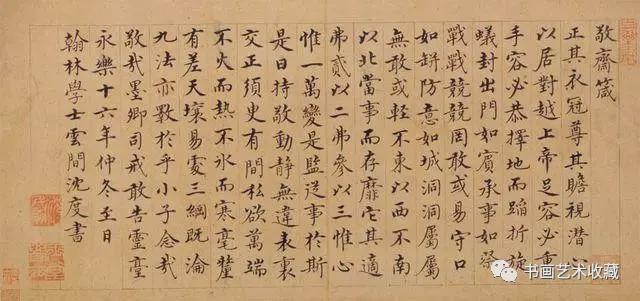 敬齋箴
正其衣冠尊其瞻視潛心
以居對越上帝足容必重
手容必恭擇地而蹈折旋
蟻封出門如賓承事如祭
戰戰兢兢罔敢或易守口
如缾防意如城洞洞屬屬
無敢或輕不東以西不南
以北當事而存靡它其適
弗貳以二弗參以三惟心
惟一萬變是監從事於斯
是曰持敬動靜無違表裏
交正須臾有間私欲萬端
不火而熱不冰而寒毫釐
有差天壤易處三綱既淪
九法亦斁於乎小子念哉
敬哉墨卿司戒敢告靈臺
永樂十六年仲冬至日
翰林學士雲間沈度書
书画艺术收藏